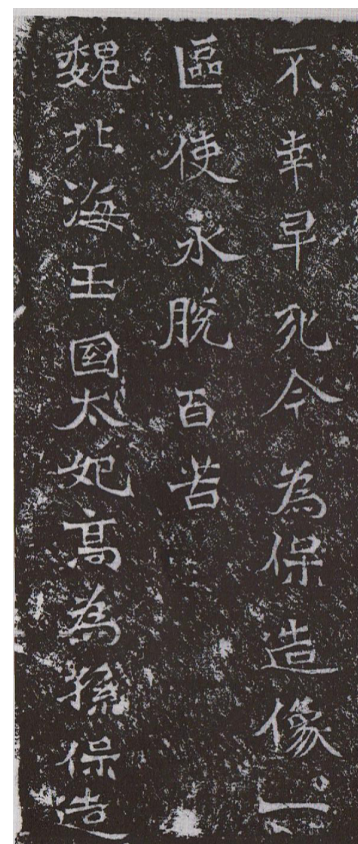 不幸早死今為保造像一
區使永脫百苦
魏北海王國太妃高為孫保造